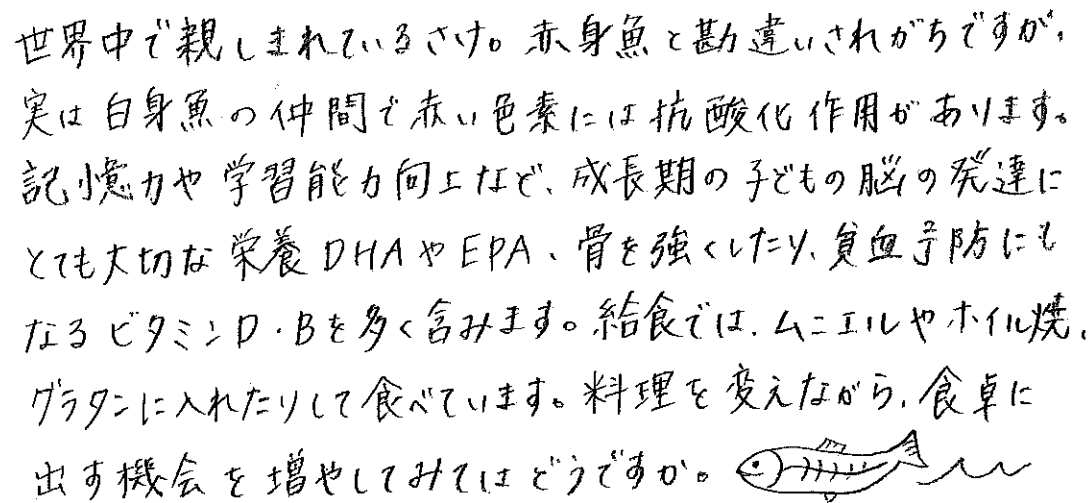 世界中で親しまれているさけ。赤身魚と勘違いされがちですが、
実は白身魚の仲間で赤い色素には抗酸化作用があります。
記憶力や学習能力向上など、成長期の子どもの脳の発達に
とても大切な栄養DHAやEPA、骨を強くしたり、貧血予防にも
なるビタミンD・Bを多く含みます。給食では、ムニエルやホイル焼、
グラタンに入れたりして食べています。料理を変えながら、食卓に
出す機会を増やしてみてはどうですか。